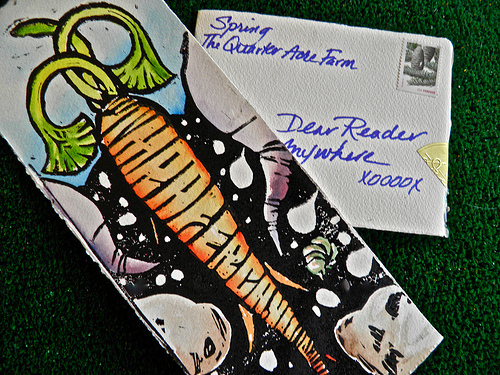 Spring
The Quarter Acre Farm
Dear Reader
Anywhere
XOOOOX